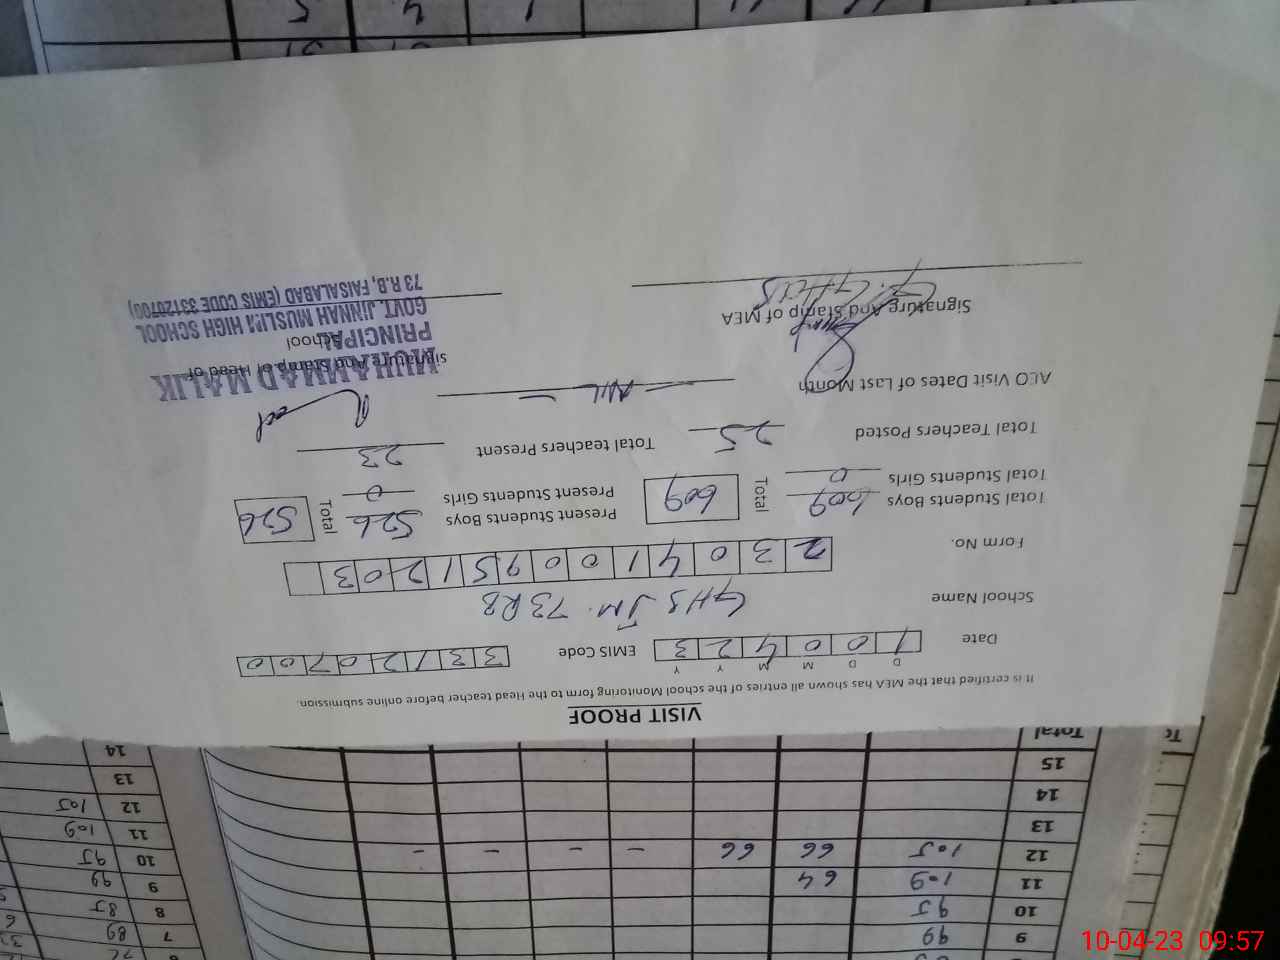 VISIT PROOF
It is certified that the MEA has shown all entries of the school Monitoring form to the Head teacher before online submission.
D D M M Y Y
Date 1 0 0 4 2 3 EMIS Code 3 3 1 2 0 7 0 0
School Name GHS JM. 73RB
Form No. 2 3 0 4 1 0 0 9 5 1 2 0 3
Total Students Boys 609 Total 609 Present Students Boys 526 Total 526
Total Students Girls 0 Present Students Girls 0
Total Teachers Posted 25 Total teachers Present 23
AEO Visit Dates of Last Month - NIL -
Signature And Stamp of MEA Signature And Stamp of Head of School
MUHAMMAD MALIK
PRINCIPAL
GOVT. JINNAH MUSLIM HIGH SCHOOL
73 R.B, FAISALABAD (EMIS CODE 33120700)
9 99
10 95
11 109 64
12 105 66 66 - - - -
13
14
15
Total
7 89
8 85
9 99
10 95
11 109
12 105
13
14
10-04-23 09:57